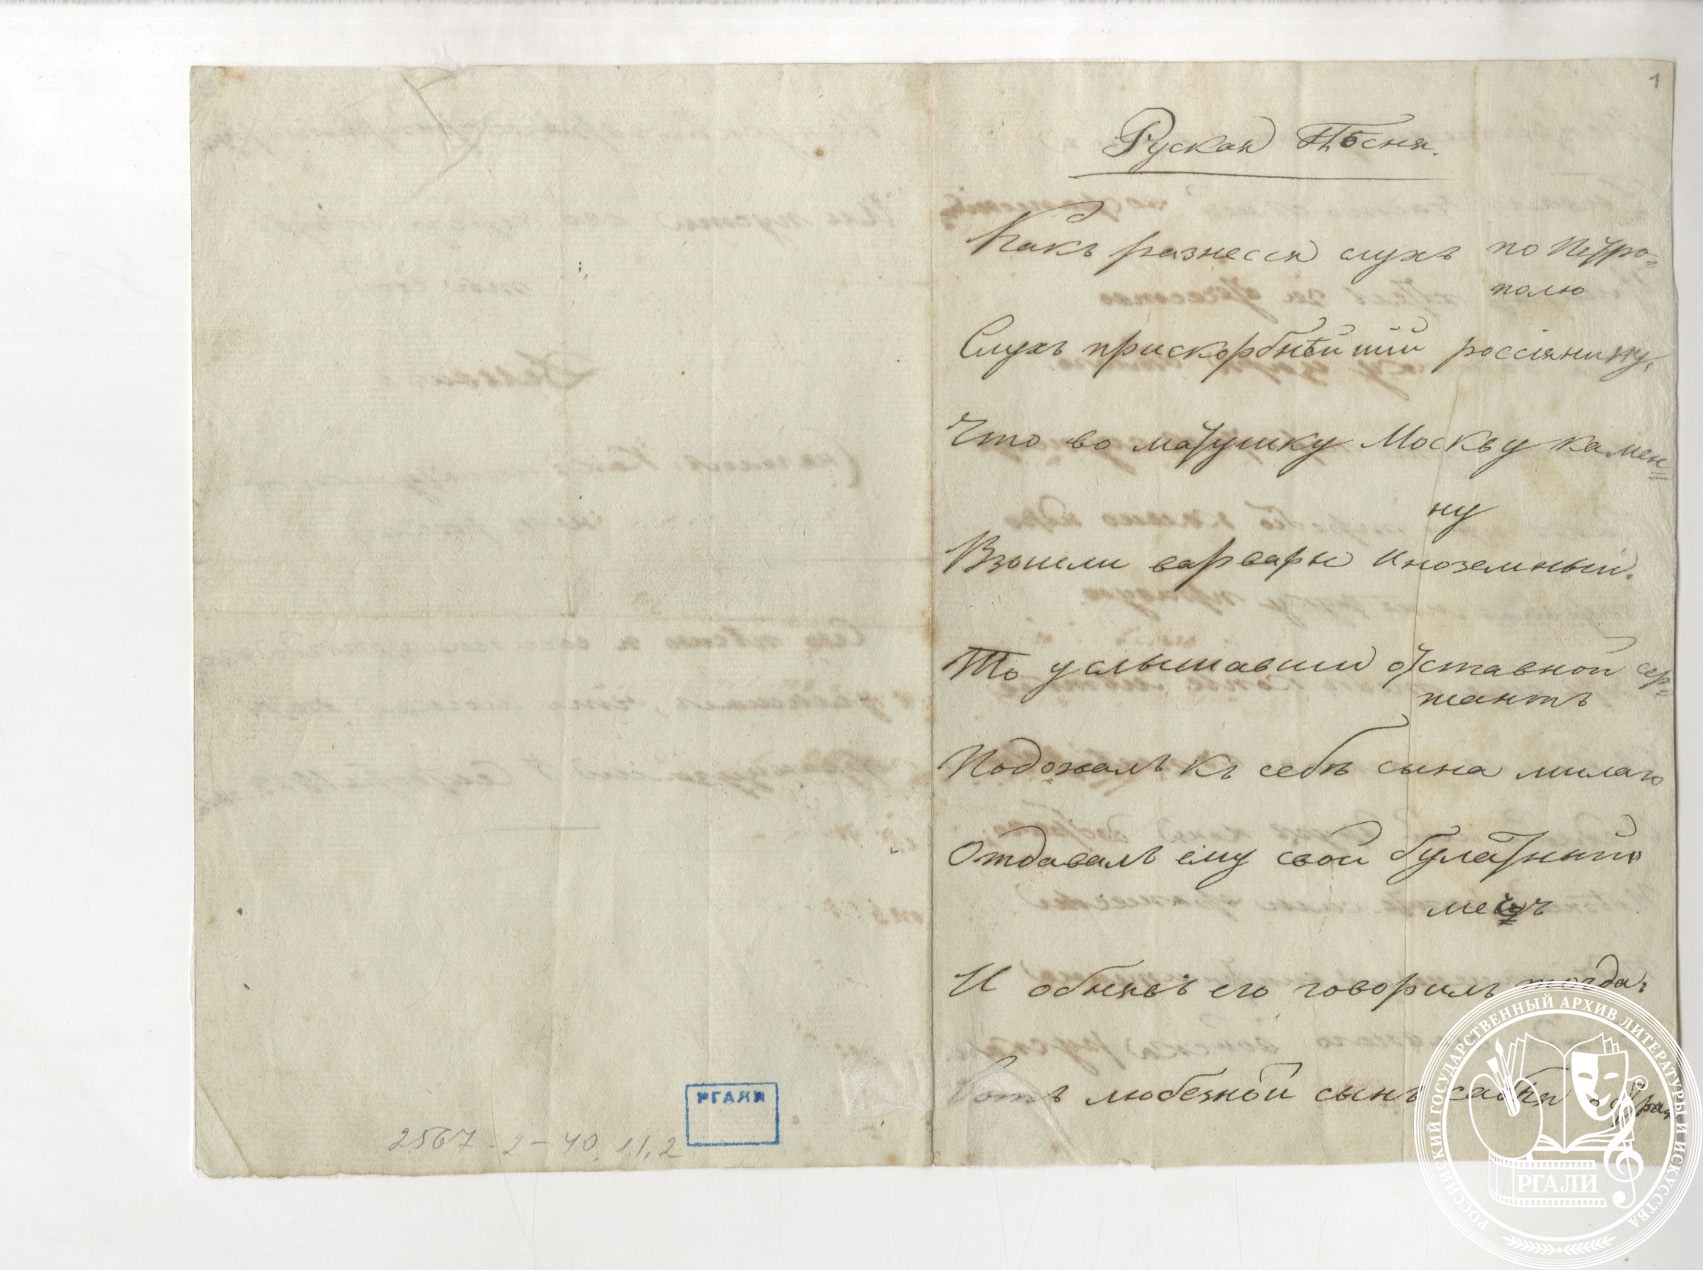 1
Руская Пѣсня.
Какъ разнесся слухъ по Петро=
полю
Слухъ прискорбнѣйший россіянину,
Что во матушку Москву камен=
ну
Взошли варвары иноземный.
То услышавши отставной сер=
жантъ
Подозвалъ къ себѣ сына милаго
Отдавалъ ему свой булатный
мечъ
И обнявъ его говорилъ тогда:
Вотъ любезной сынъ сабля острая
РГАЛИ
2567-2-40, л1,2
РОССИЙСКИЙ ГОСУДАРСТВЕННЫЙ АРХИВ ЛИТЕРАТУРЫ И ИСКУССТВА
РГАЛИ